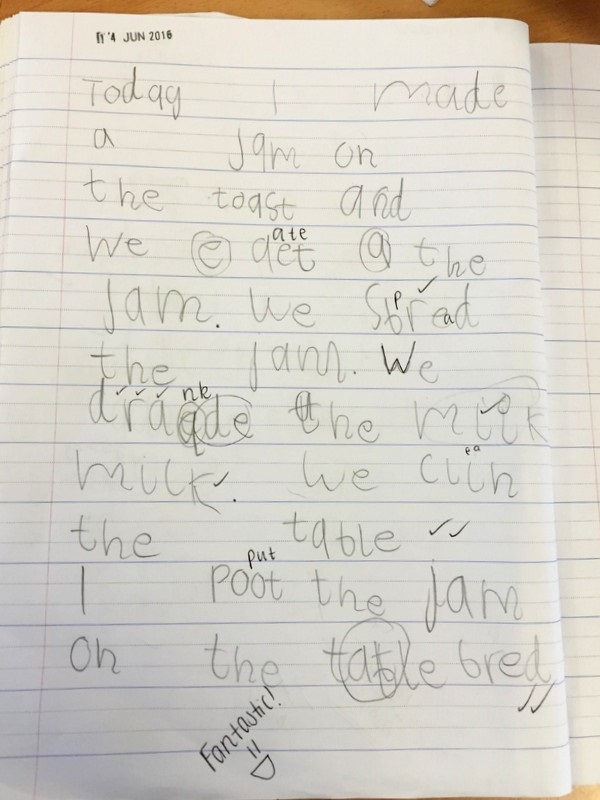 14 JUN 2016
Today I made
a Jam on
the toast and
ate
We e det a the
p
Jam. We Sbread
the Jam. We
nk
draqde the milk
ea
milk. We cliin
the table
put
I Poot the Jam
on the table bred
Fantastic!